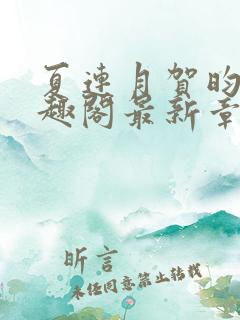 夏连月贺昀
趣阁最新章
昕言
未经同意禁止转载